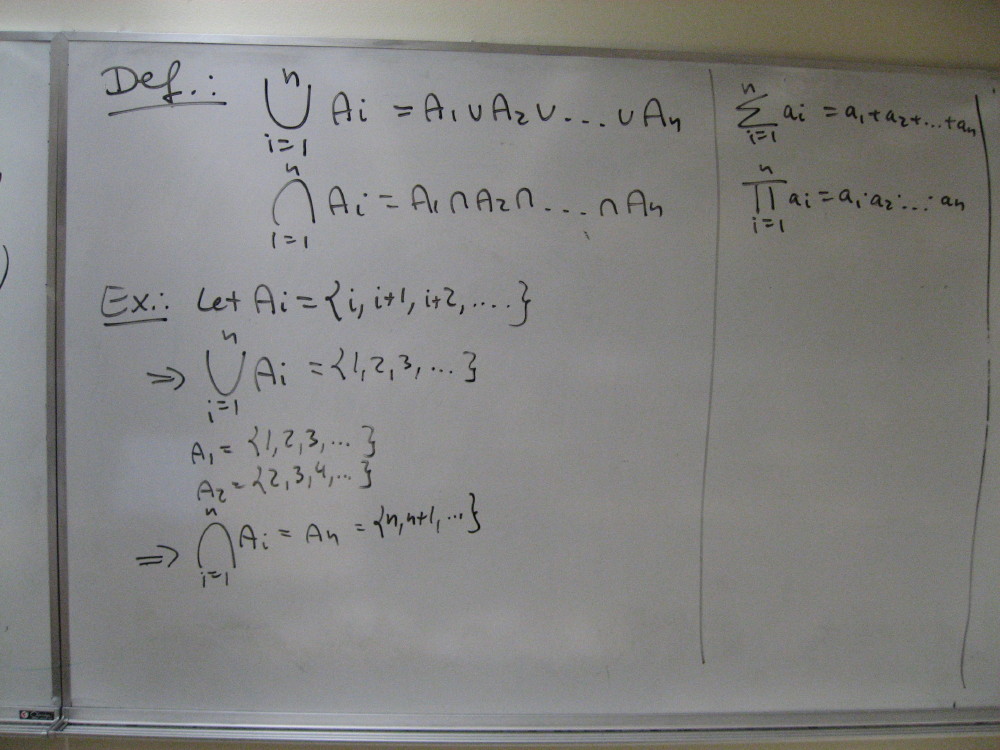 Def.:
n
⋃ Ai = A1 ∪ A2 ∪ ... ∪ An
i=1
n
⋂ Ai = A1 ∩ A2 ∩ ... ∩ An
i=1
Ex.: Let Ai = {i, i+1, i+2, ....}
n
⇒ ⋃ Ai = {1, 2, 3, ...}
i=1
A1 = {1, 2, 3, ...}
A2 = {2, 3, 4, ...}
n
⇒ ⋂ Ai = An = {n, n+1, ...}
i=1
n
∑ ai = a1 + a2 + ... + an
i=1
n
∏ ai = a1 · a2 · ... · an
i=1